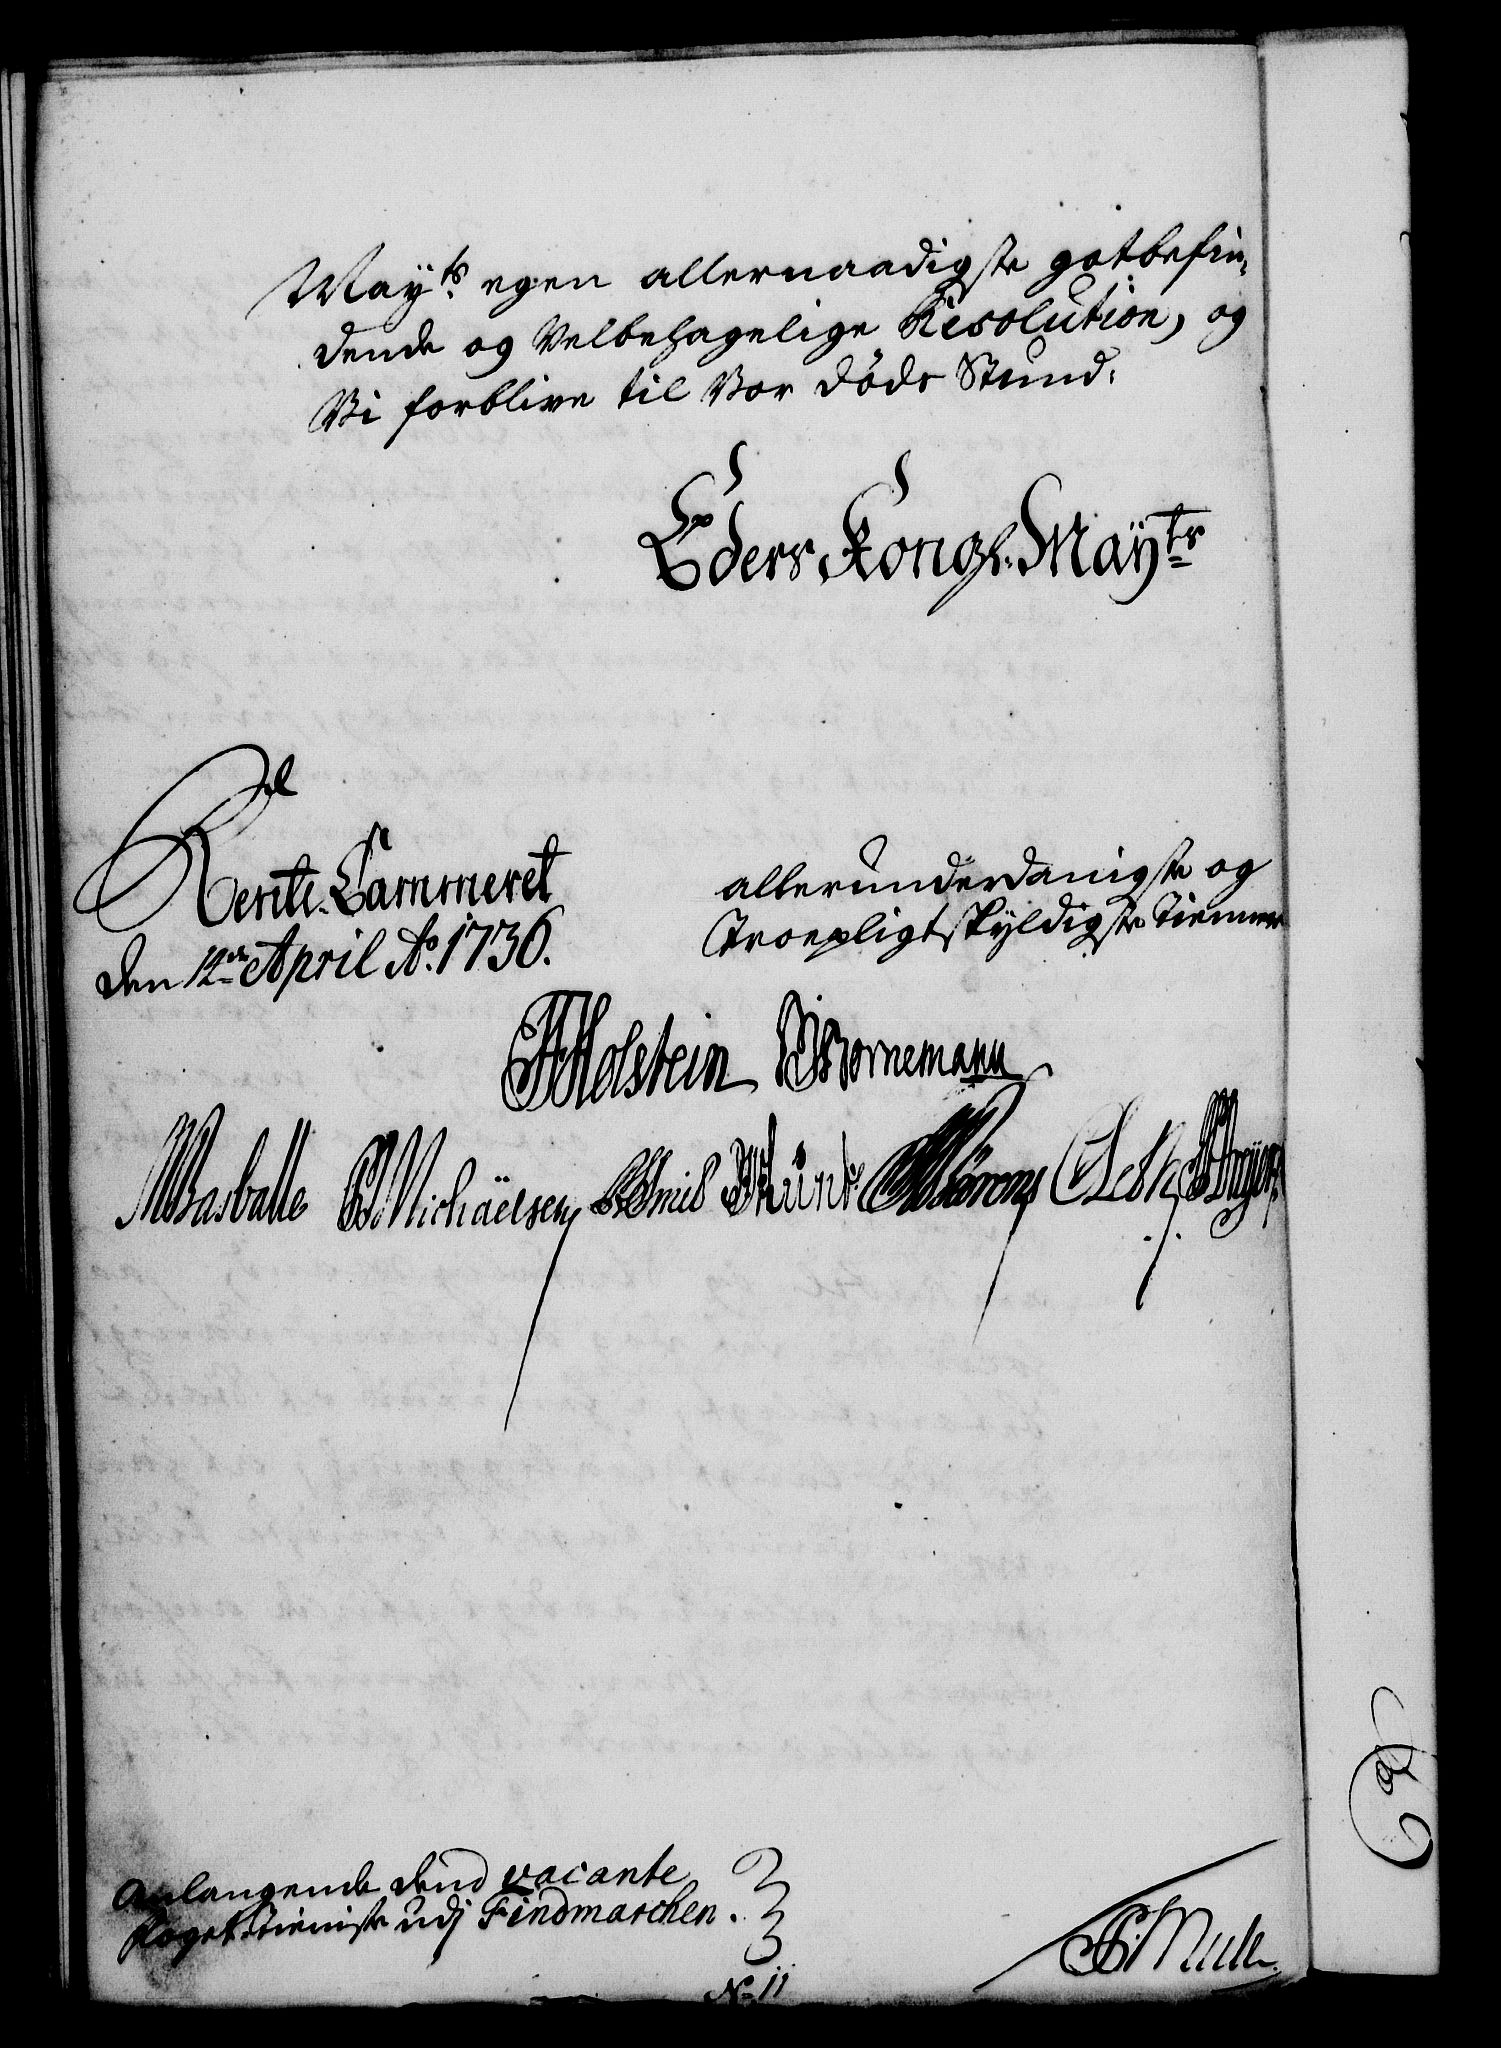 Mayts egen allernaadigste gotbefin-
dende og Velbehagelige Resolution, og
Vi forblive til Vor Døds Stund.
Eders Kongl. Mayts
Rente-Cammeret
den 12te April Ao. 1736.
allerunderdanigste og
Troepligtskyldigste Tienere
Holstein Bornemann
Basballe Michäelsen
anlangende dend vacante
Foget Tieniste udj Findmarchen.
No 11